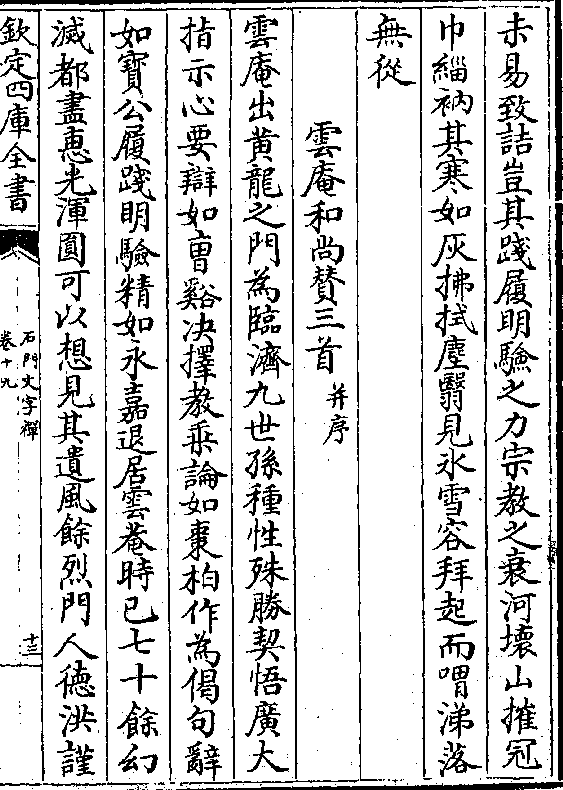 未易致詰豈其踐履明驗之力宗教之衰河壞山摧冠
巾緇衲其寒如灰拂拭塵翳見氷雪容拜起而喟涕落
無從
雲庵和尚賛三首并序
雲庵出黄龍之門為臨濟九世孫種性殊勝契悟廣大
指示心要辯如曹谿决擇教乗論如棗柏作為偈句辭
如寳公履踐明驗精如永嘉退居雲菴時已七十餘幻
滅都盡恵光渾圓可以想見其遺風餘烈門人徳洪謹
欽定四庫全書
石門文字禪
卷十九
十三